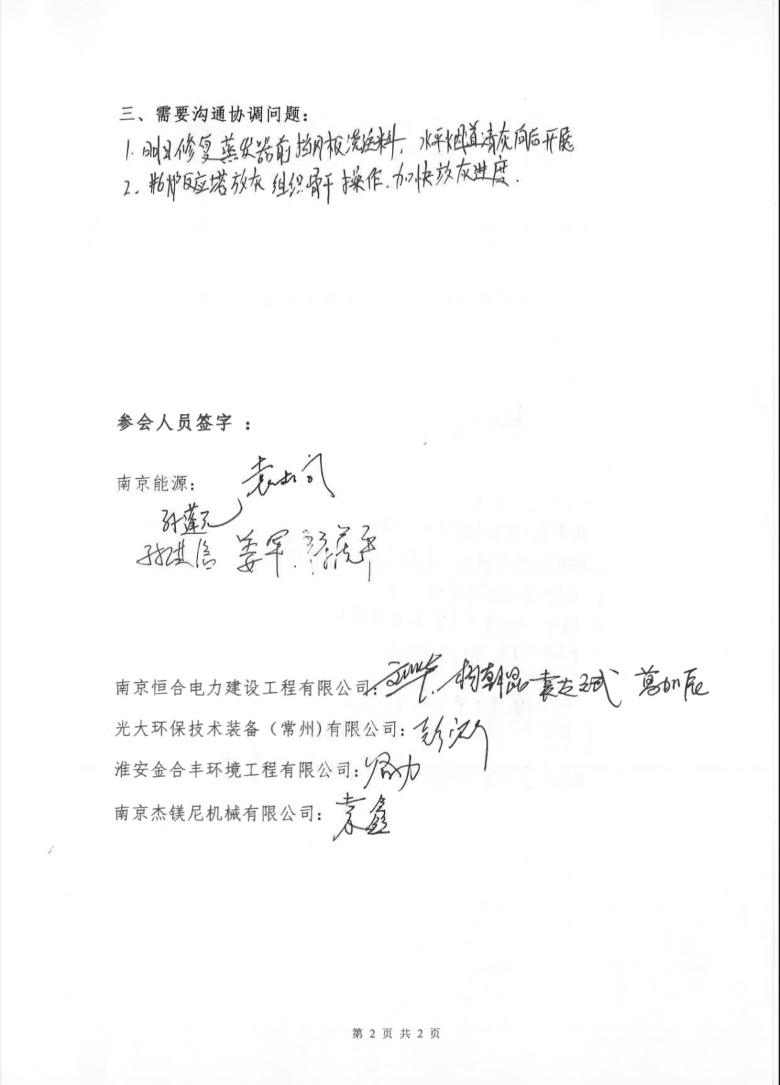 三、需要沟通协调问题：
1. 明日修复蒸发器前挡风板浇注料，水平烟道清灰向后开展
2. 反应塔放灰 组织骨干操作.加快放灰进度.
参会人员签字 ：
南京能源：
姜军.
南京恒合电力建设工程有限公司: 杨朝昆 葛加辰
光大环保技术装备（常州)有限公司：彭
淮安金合丰环境工程有限公司：
南京杰镁尼机械有限公司：袁鑫
第 2 页 共 2 页